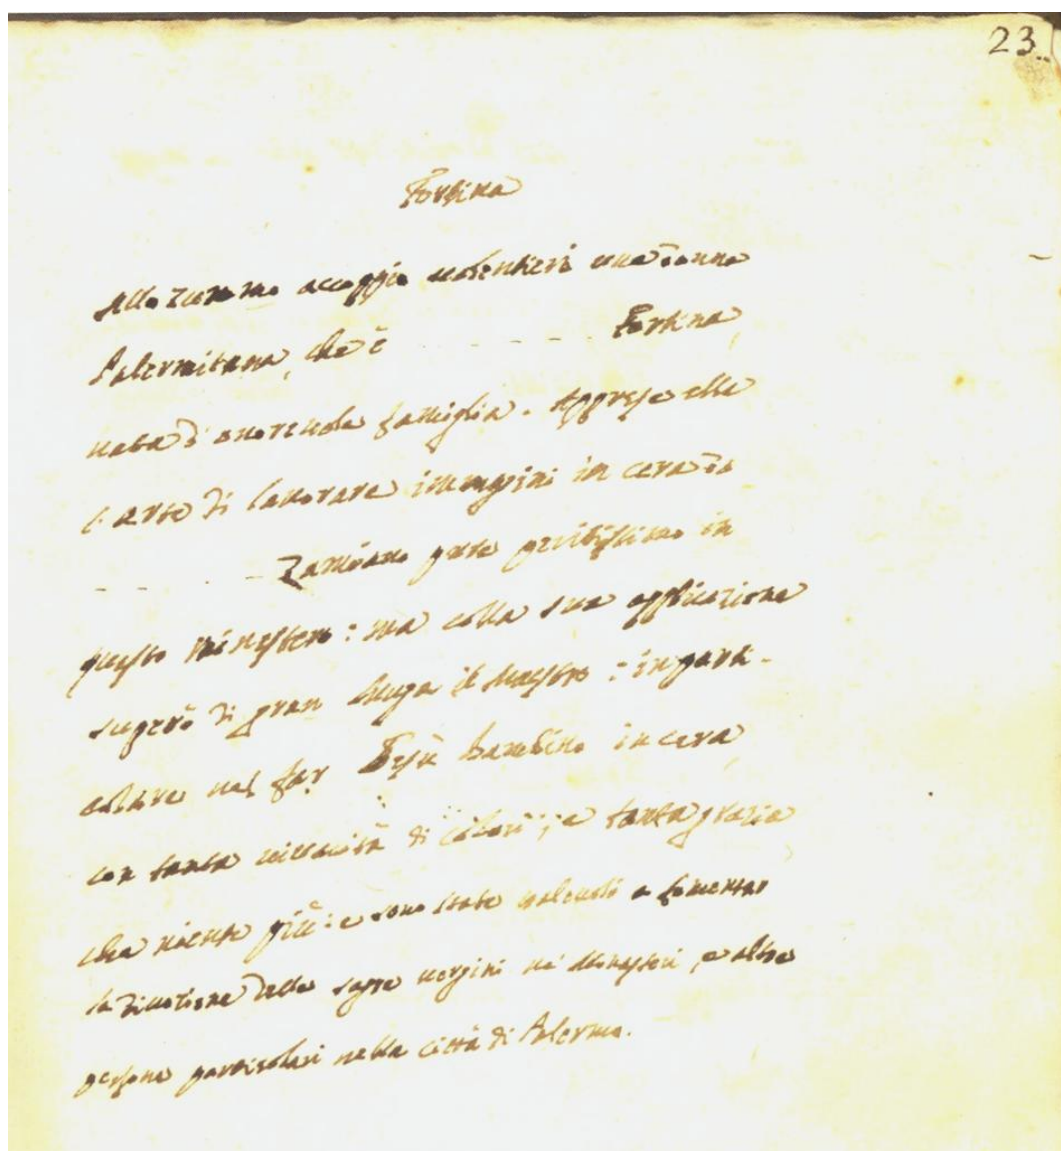 23.
Fortina
Allo Zummo accoppio volentieri una donna
Palermitana, che è - - - - - - Fortina,
nata d'onorevole famiglia. Apprese ella
l'arte di lavorare immagini in cera da
- - - - - - Zamiano prete peritissimo in
questo ministero: ma colla sua applicazione
superò di gran lunga il Maestro: in parti-
colare nel far Gesù bambino in cera
con tanta vivacità di colori, e tanta grazia
che niente più: e sono state valevoli a fomentar
la divotione delle sagre vergini ne' Monasteri, e altre
persone particolari nella città di Palermo.